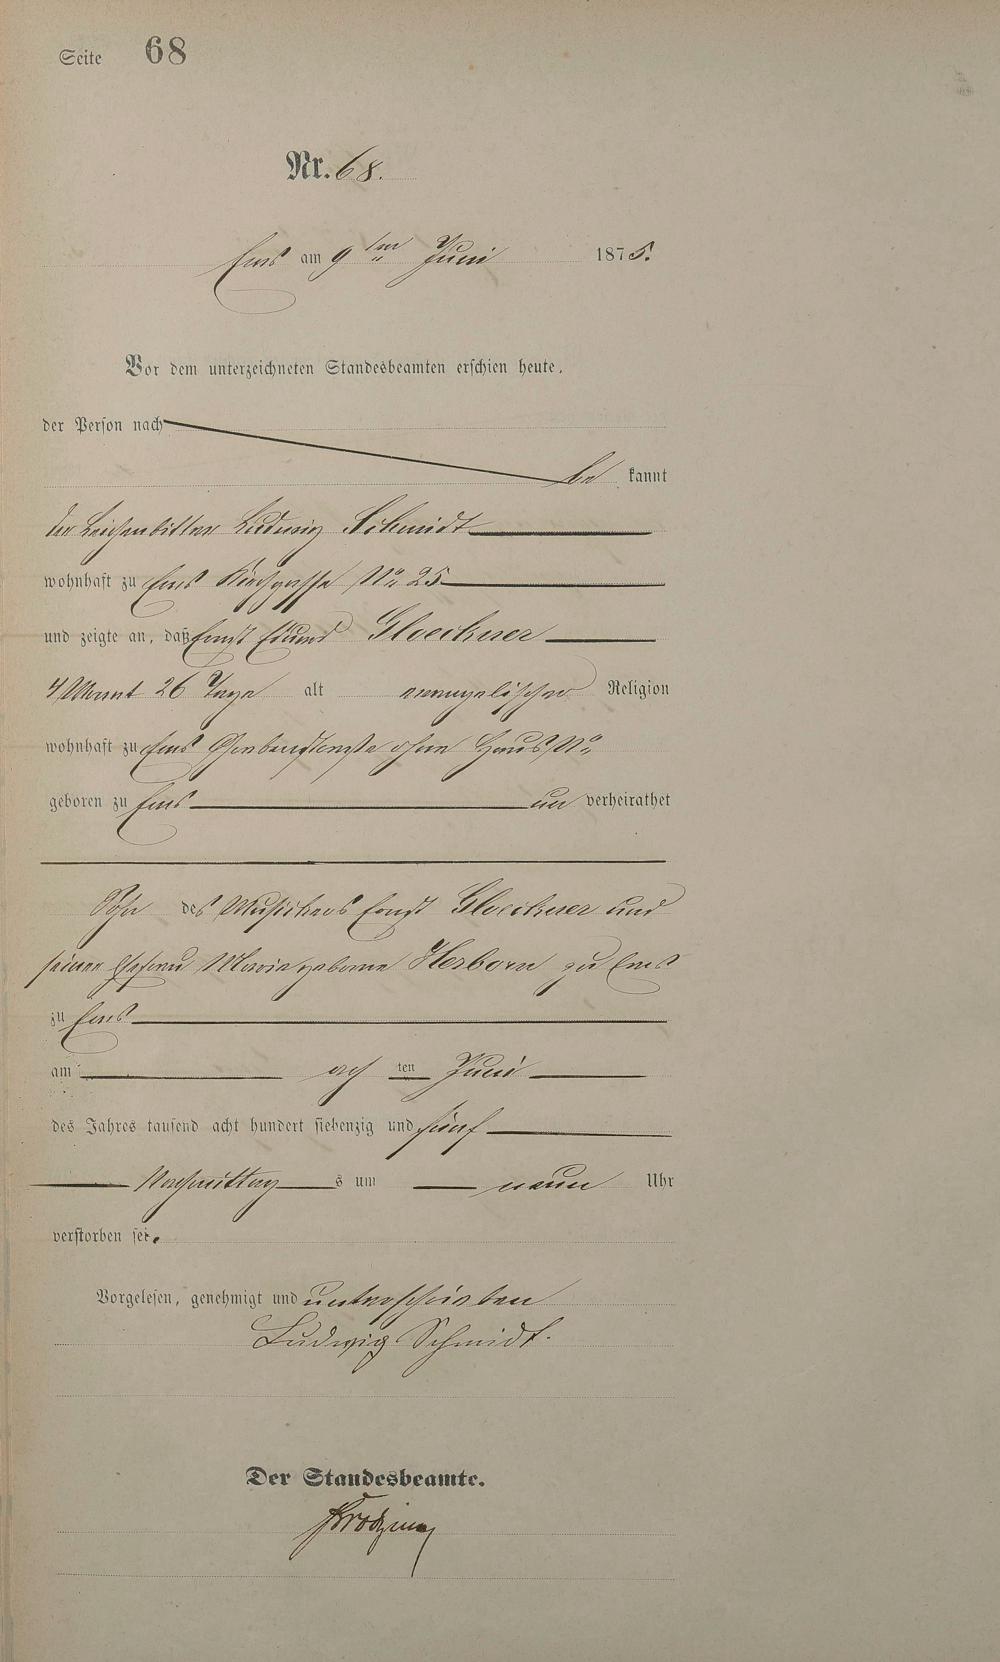 Seite 68
Nr. 68.
Ems am 9ten Juni 1875.
Vor dem unterzeichneten Standesbeamten erschien heute,
der Person nach
be kannt
der Leichenbitter Ludwig Schmidt
wohnhaft zu Ems Kirchgasse No. 25
und zeigte an, daß Ernst Eduard Gloeckner
4 Monat 26 Tage alt evangelischer Religion
wohnhaft zu Ems ohne Haus No.
geboren zu Ems un verheirathet
Sohn des Musickers Ernst Gloeckner und
seiner Ehefrau Maria geborne Herborn zu Ems
zu Ems
am ach ten Juni
des Jahres tausend acht hundert siebenzig und fünf
Nachmittag s um neun Uhr
verstorben sei.
Vorgelesen, genehmigt und unterschrieben
Ludwig Schmidt.
Der Standesbeamte.